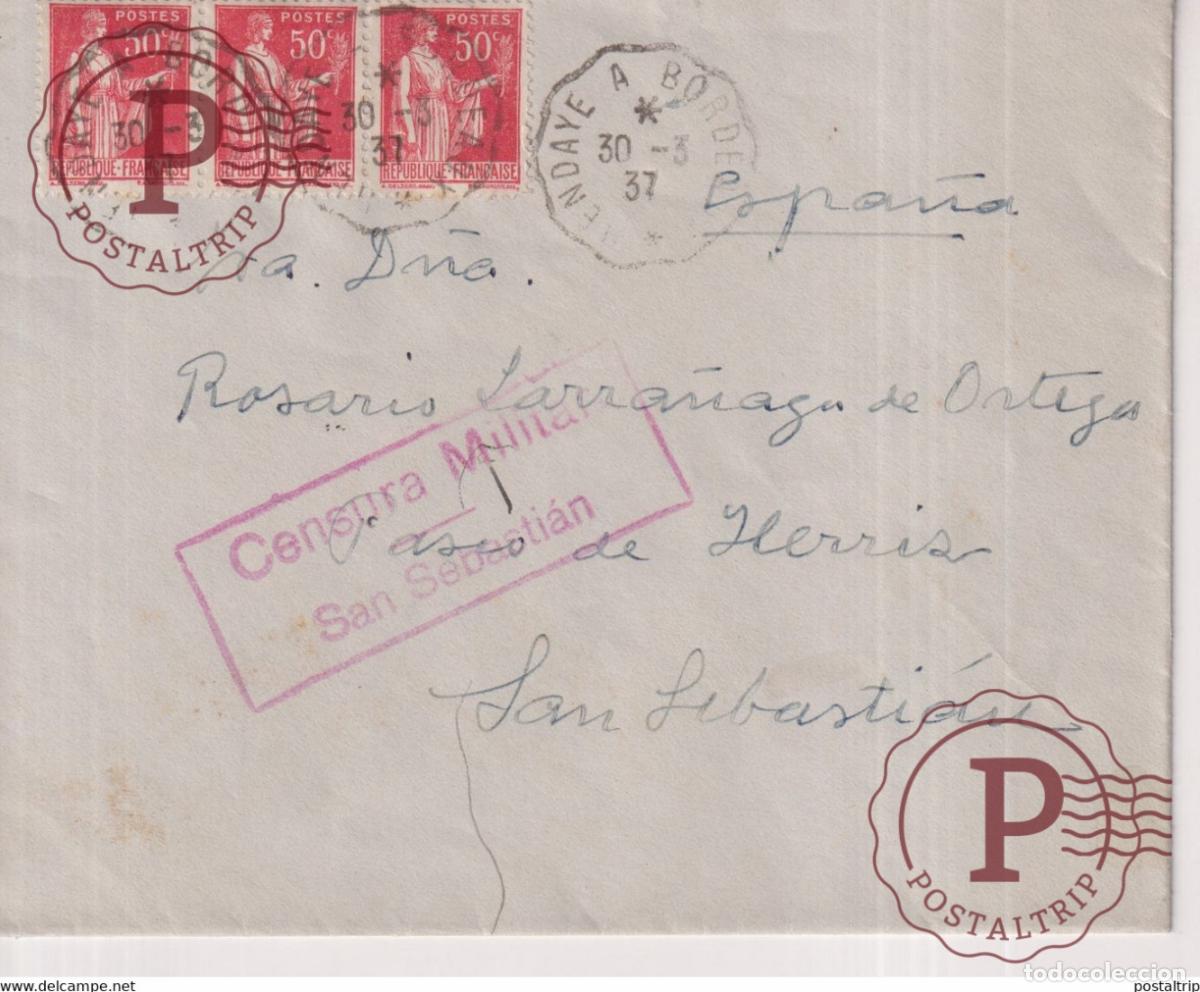 POSTES POSTES POSTES
50c 50c 50c
REPUBLIQUE-FRANÇAISE REPUBLIQUE-FRANÇAISE REPUBLIQUE-FRANÇAISE
30 -3
30 -3
37
HENDAYE A BORDE
30 -3
37
España
P
POSTALTRIP
Dña.
Rosario Larrañaga de Ortega
Censura Militar
San Sebastián
Paseo de Herriz
San Sebastián
P
POSTALTRIP
todocoleccion
www.delcampe.net
postaltrip